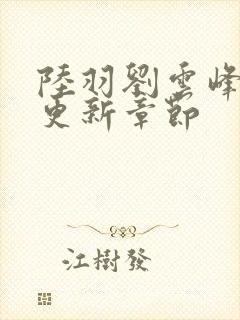 陸羽劉雲峰
更新章節
江樹發